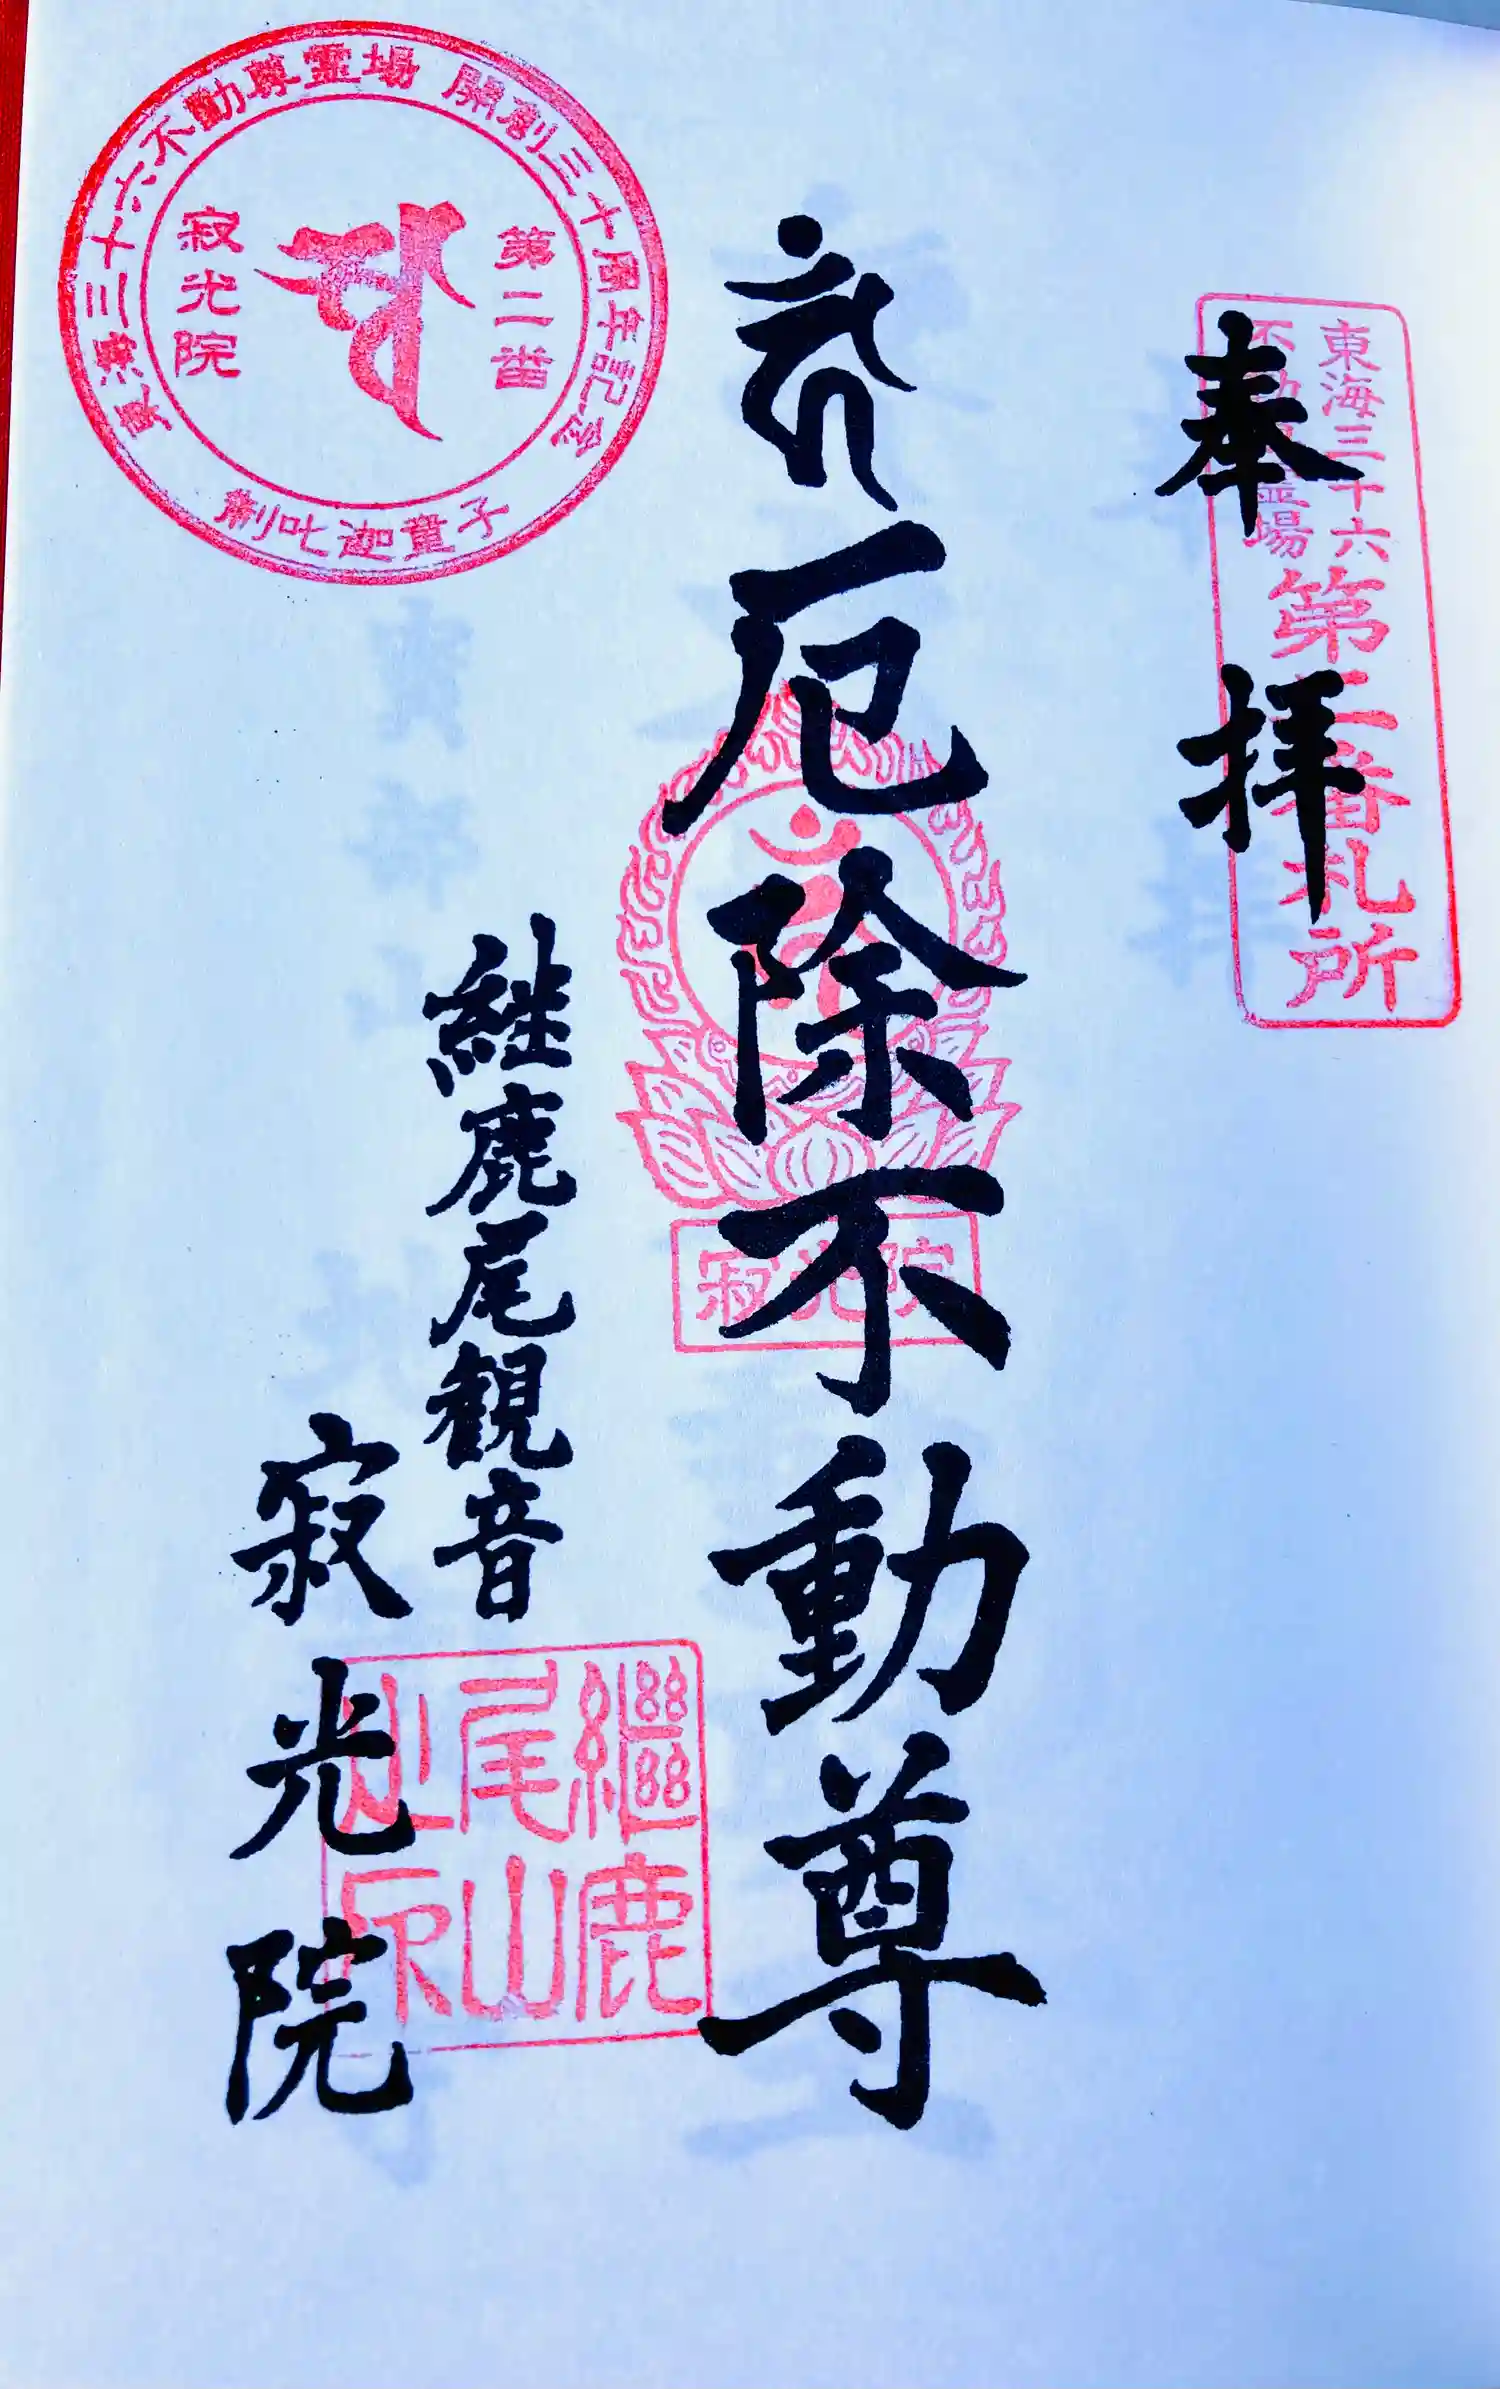 奉拝
東海三十六
不動尊霊場
第二番札所
厄除不動尊
寂光院
継鹿尾観音
寂光院
繼鹿
尾山
東海三十六不動尊霊場 開創三十周年記念
第二番
寂光院
制吒迦童子